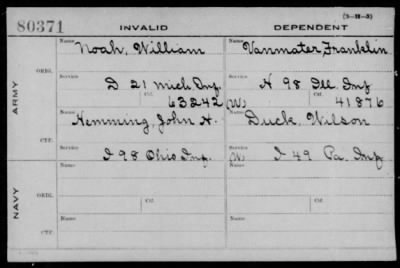 (3-111-3)
80371 INVALID DEPENDENT
Name Noah, William Name Vanmater, Franklin
ORIG.
Service D 21 Mich Inf. Service H 98 Ill. Inf
Ctf. 63242 (W) Ctf. 41876
ARMY
Name Hemming, John H. Name Duck, Wilson
CTF.
Service I 98 Ohio Inf. (W) Service I 49 Pa. Inf
Name Name
ORIG.
Service Ctf. Service Ctf.
NAVY
Name Name
CTF.
Service Service